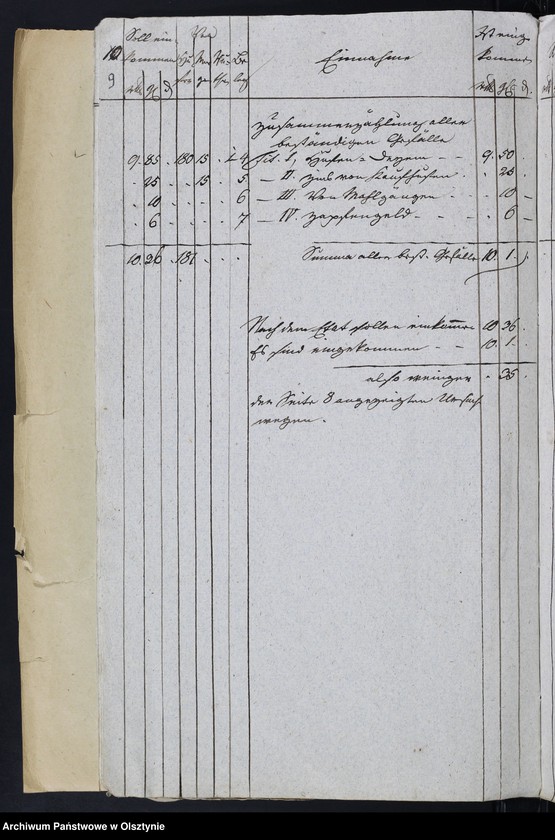 Soll ein
kommen
9
Einnahme
kommen
Zusammenzählung aller
beständigen Gefälle
9. 85 . 180 15 . 4 Tit. I, Hufen-Dezem - - 9. 50
. 25 . . 15 . . 5 — II. Zins von Kaufhufen . . 25
. 10 . . . . 6 — III. Von Mahlgängen - . 10 —
. 6 . . . . 7 — IV. Zapfengeld - - . 6 —
10. 26 . 181 . . . Summa aller best. Gefälle 10. 1 .
Nach dem Etat sollen einkommen 10 36
Es sind eingekommen - - 10. 1 .
also weniger . 35
der Seite 8 angezeigten Ursach
wegen.
Archiwum Państwowe w Olsztynie